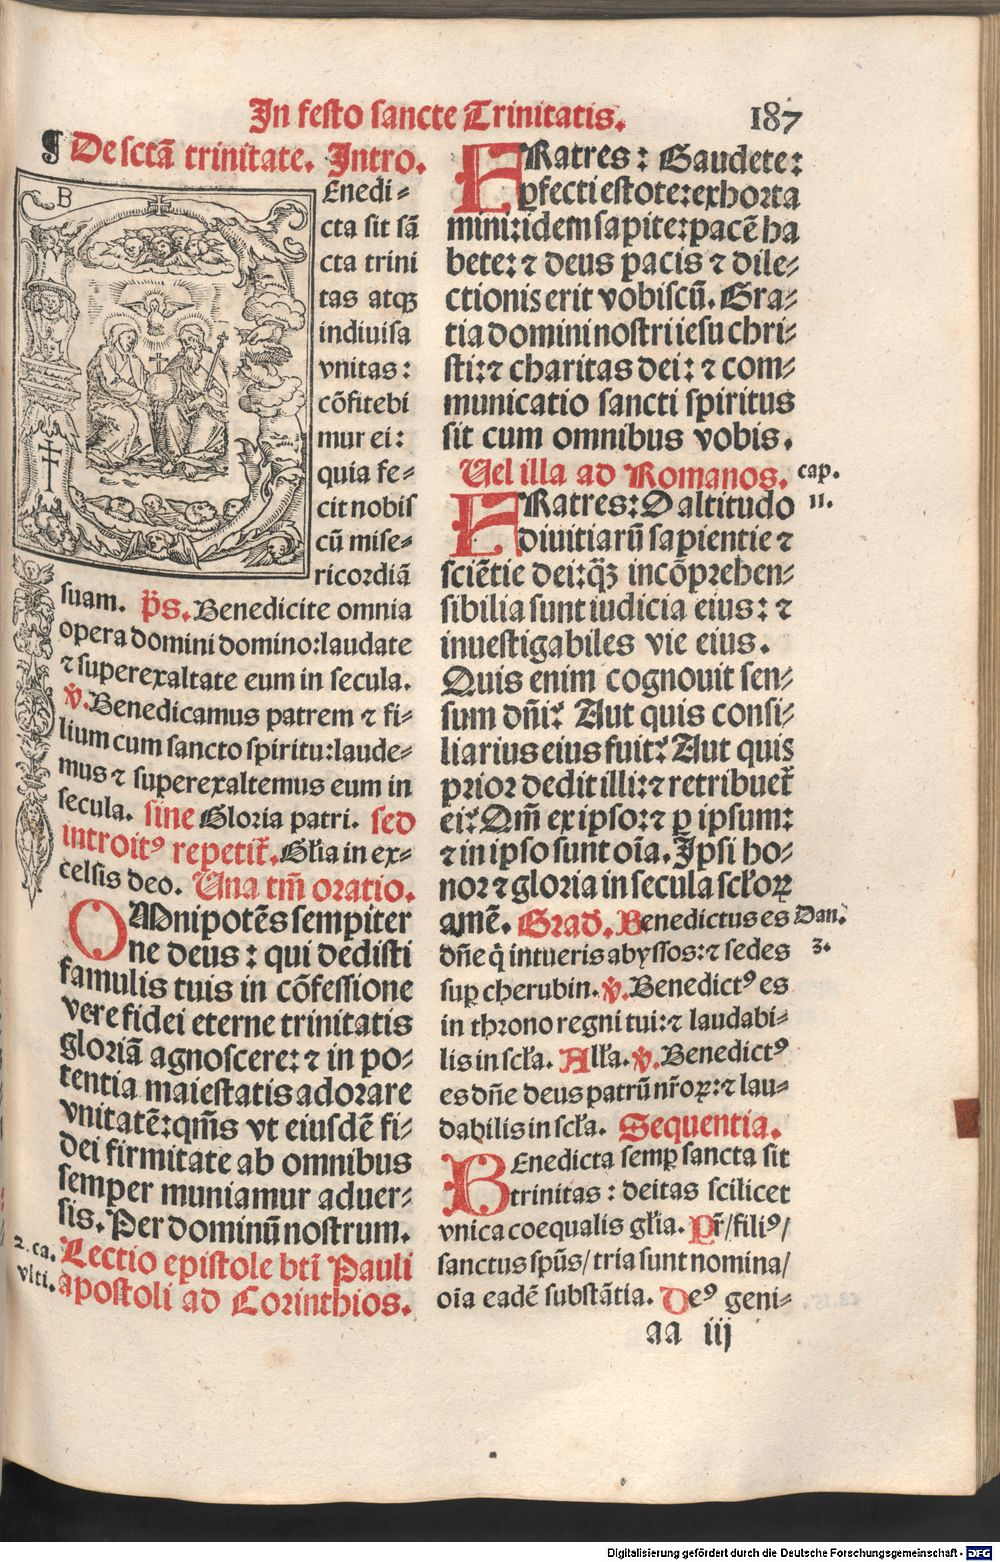 In festo sancte Trinitatis.
187
¶ De sctā trinitate. Intro.
BEnedi-
cta sit sā
cta trini
tas atqꝫ
indiuisa
vnitas:
cōfitebi
mur ei:
quia fe-
cit nobis
cū mise-
ricordiā
suam. p̄s. Benedicite omnia
opera domini domino: laudate
⁊ superexaltate eum in secula.
℣. Benedicamus patrem ⁊ fi-
lium cum sancto spiritu: laude-
mus ⁊ superexaltemus eum in
secula. sine Gloria patri. sed
introitꝰ repetit̄. Gl̄ia in ex-
celsis deo. Una tm̄ oratio.
OMnipotēs sempiter
ne deus: qui dedisti
famulis tuis in cōfessione
vere fidei eterne trinitatis
gloriā agnoscere: ⁊ in po-
tentia maiestatis adorare
vnitatē: qm̄s vt eiusdē fi-
dei firmitate ab omnibus
semper muniamur aduer-
sis. Per dominū nostrum.
2. ca. Lectio epistole bti̅ Pauli
vlti. apostoli ad Corinthios.
FRatres: Gaudete:
ꝑfecti estote: exhorta
mini: idem sapite: pacē ha
bete: ⁊ deus pacis ⁊ dile-
ctionis erit vobiscū. Gra-
tia domini nostri iesu chri-
sti: ⁊ charitas dei: ⁊ com-
municatio sancti spiritus
sit cum omnibus vobis.
Uel illa ad Romanos. cap.
11.
FRatres: O altitudo
diuitiarū sapientie ⁊
sciētie dei: q̄ꝫ incōprehen-
sibilia sunt iudicia eius: ⁊
inuestigabiles vie eius.
Quis enim cognouit sen-
sum dn̄i? Aut quis consi-
liarius eius fuit? Aut quis
prior dedit illi: ⁊ retribuet̄
ei? Qm̄ ex ipso: ⁊ ꝑ ipsum:
⁊ in ipso sunt oīa. Ipsi ho-
nor ⁊ gloria in secula scl̄oꝝ
amē. Grad. Benedictus es Dan.
3.
dn̄e q̇ intueris abyssos: ⁊ sedes
suꝑ cherubin. ℣. Benedictꝰ es
in throno regni tui: ⁊ laudabi-
lis in scl̄a. All̄a. ℣. Benedictꝰ
es dn̄e deus patrū nr̄oꝝ: ⁊ lau-
dabilis in scl̄a. Sequentia.
BEnedicta semꝑ sancta sit
trinitas: deitas scilicet
vnica coequalis gl̄ia. Pr̄/filiꝰ/
sanctus spūs/tria sunt nomina/
oīa eadē substātia. Deꝰ geni-
aa iij
Digitalisierung gefördert durch die Deutsche Forschungsgemeinschaft - DFG